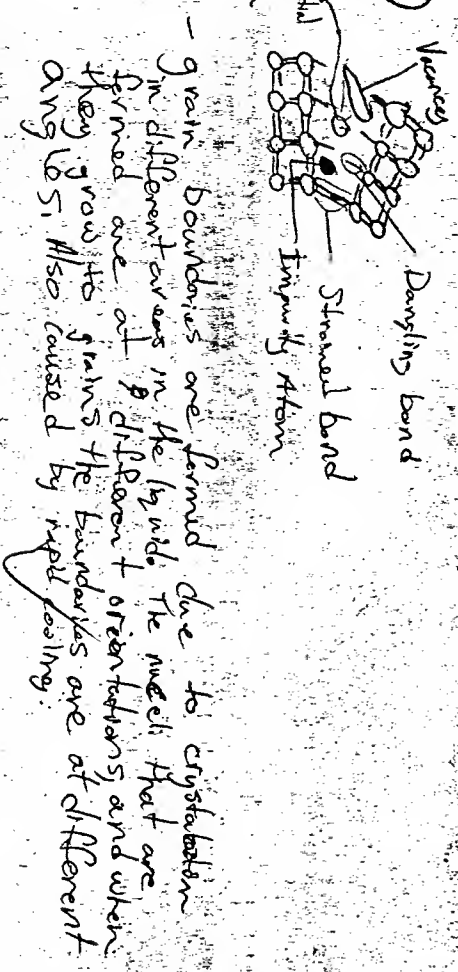 Vacancy
Dangling bond
Strained bond
Impurity Atom
tial
- grain boundaries are formed due to crystallization
in different areas in the liquid. The nuclei that are
formed are at different orientations, and when
they grow to grains the boundaries are at different
angles. Also caused by rapid cooling.